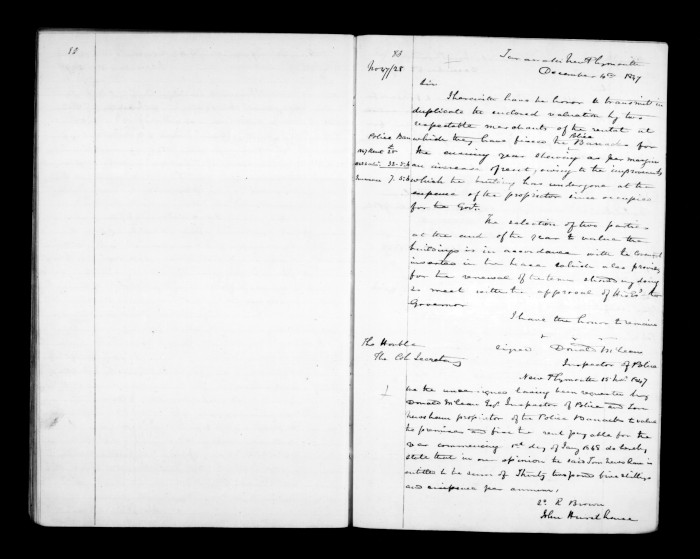 82
83
No 47/28
Taranaki New Plymouth
December 4th 1847
Sir
I herewith have the honor to transmit in
duplicate the enclosed valuation by two
respectable merchants of the rental at
which they have fixed the Police Barracks for
the ensuing year showing as per margin
an increase of rent, owing to the improvements
which the building has undergone at the
expense of the proprietor since occupied
for the Govt.
Police Barr
25
32. 5. 6
Increase 7. 5. 6
The selection of two parties
at the end of the year to value the
buildings is in accordance with the
inserted in the lease which also provides
for the renewal of the term should my doing
so meet with the approval of His Exy the
Governor
I have the honor to remain
signed Donald McLean
Inspector of Police
The Honble
The Col Secretary
New Plymouth 15 Nov 1847
We the undersigned having been requested by
Donald McLean Esq Inspector of Police and
proprietor of the Police Barracks to value
the premises and fix the rent payable for the
year commencing 1st day of Jany 1848 do hereby
state that in our opinion the said is
entitled to the sum of Thirty two pounds five shillings
and sixpence per annum.
R Brown
John Hursthouse